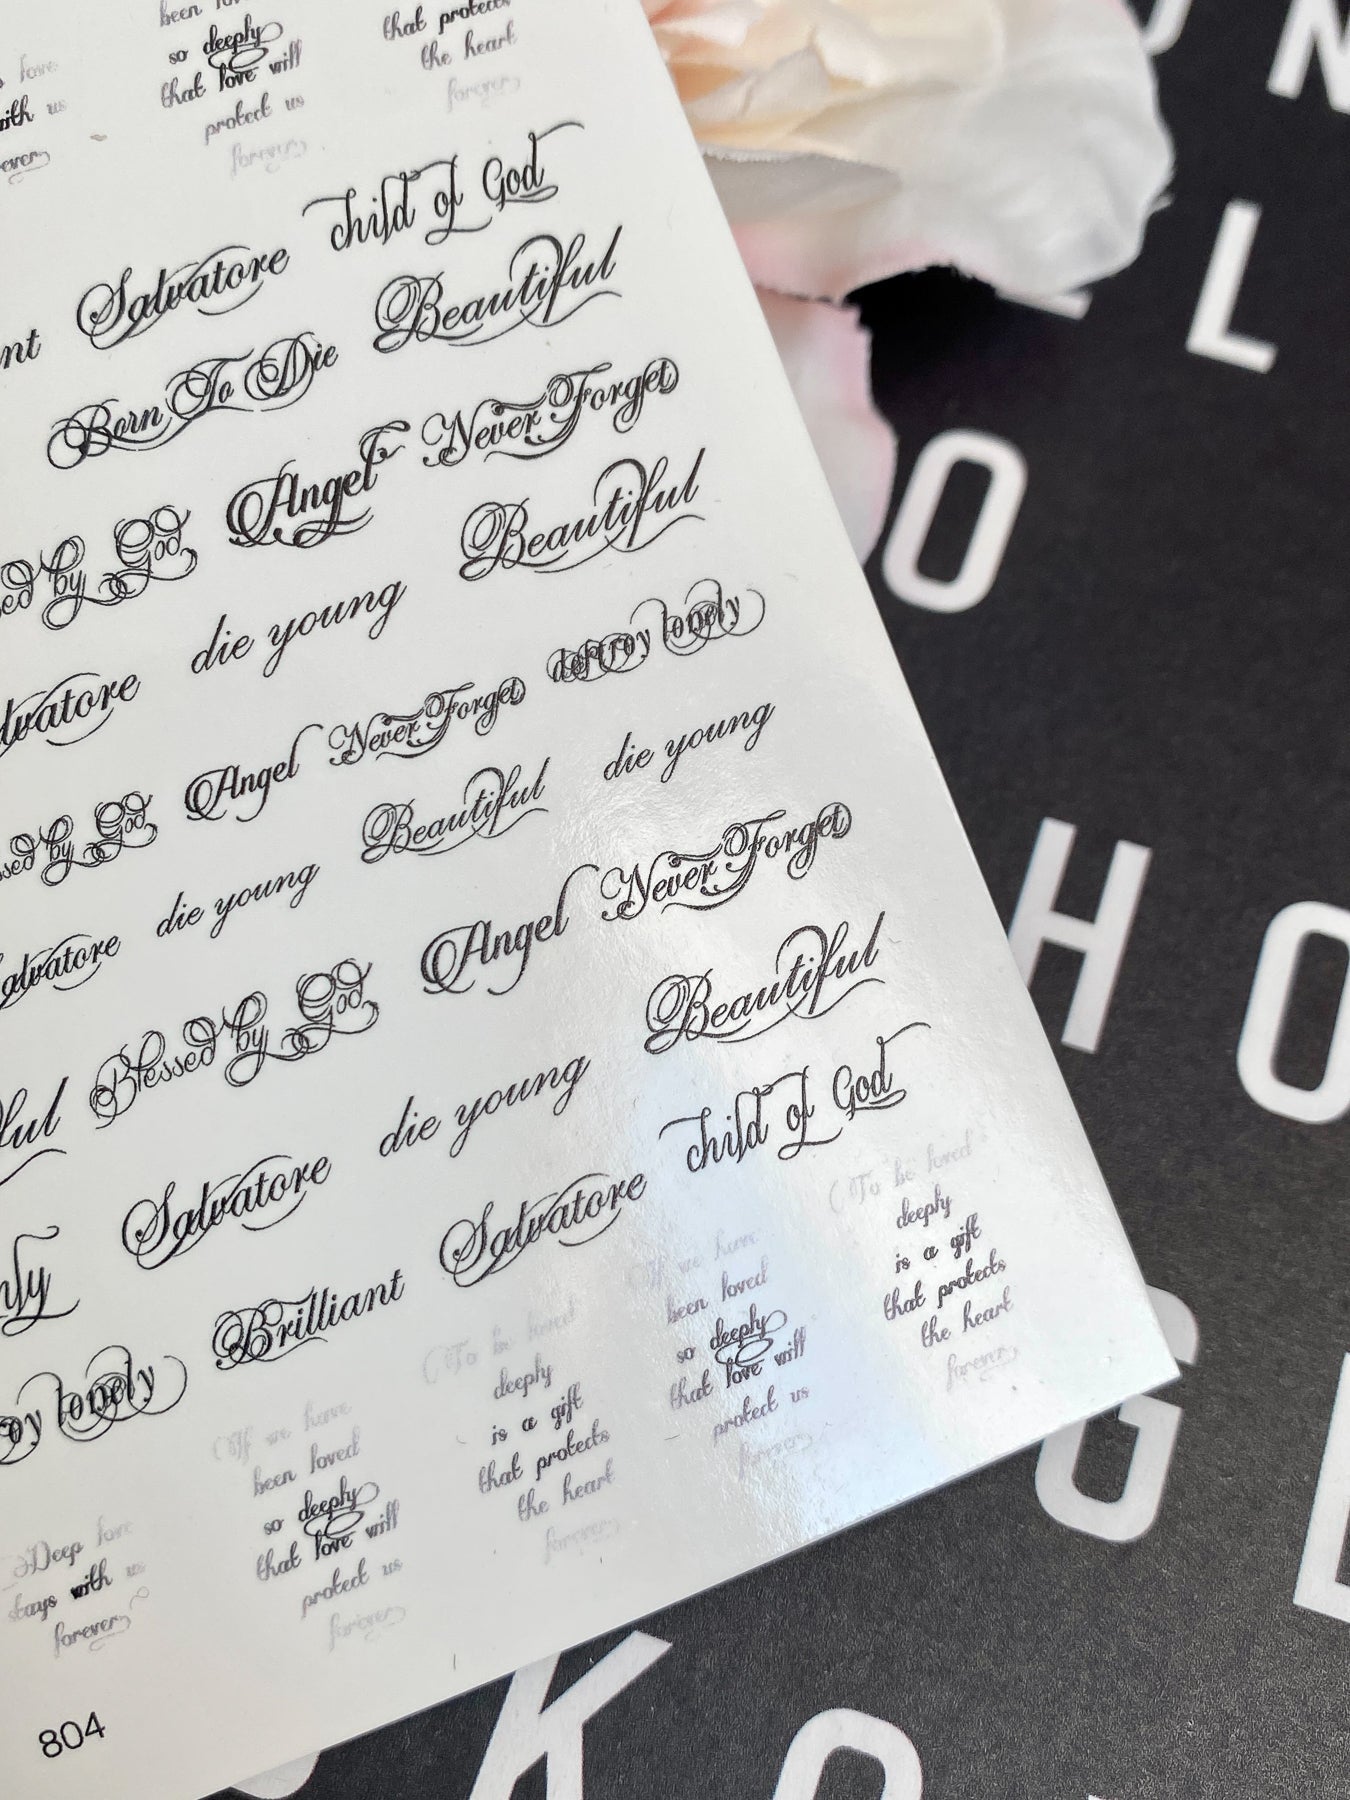 so deeply
that love will
protect us
forever
that protects
the heart
forever
with us
Salvatore
Child of God
Born To Die
Beautiful
Angel
Never Forget
by God
die young
Beautiful
Never Forget
destroy lonely
by God
Angel
Beautiful
die young
Salvatore
die young
Angel
Never Forget
Blessed by God
die young
Beautiful
Salvatore
Salvatore
Child of God
lonely
Brilliant
Deep love
stays with us
forever
(If we have
been loved
so deeply
that love will
protect us
forever
(To be loved
deeply
is a gift
that protects
the heart
forever
(If we have
been loved
so deeply
that love will
protect us
forever
(To be loved
deeply
is a gift
that protects
the heart
forever
804
L
O
H
O
G
K